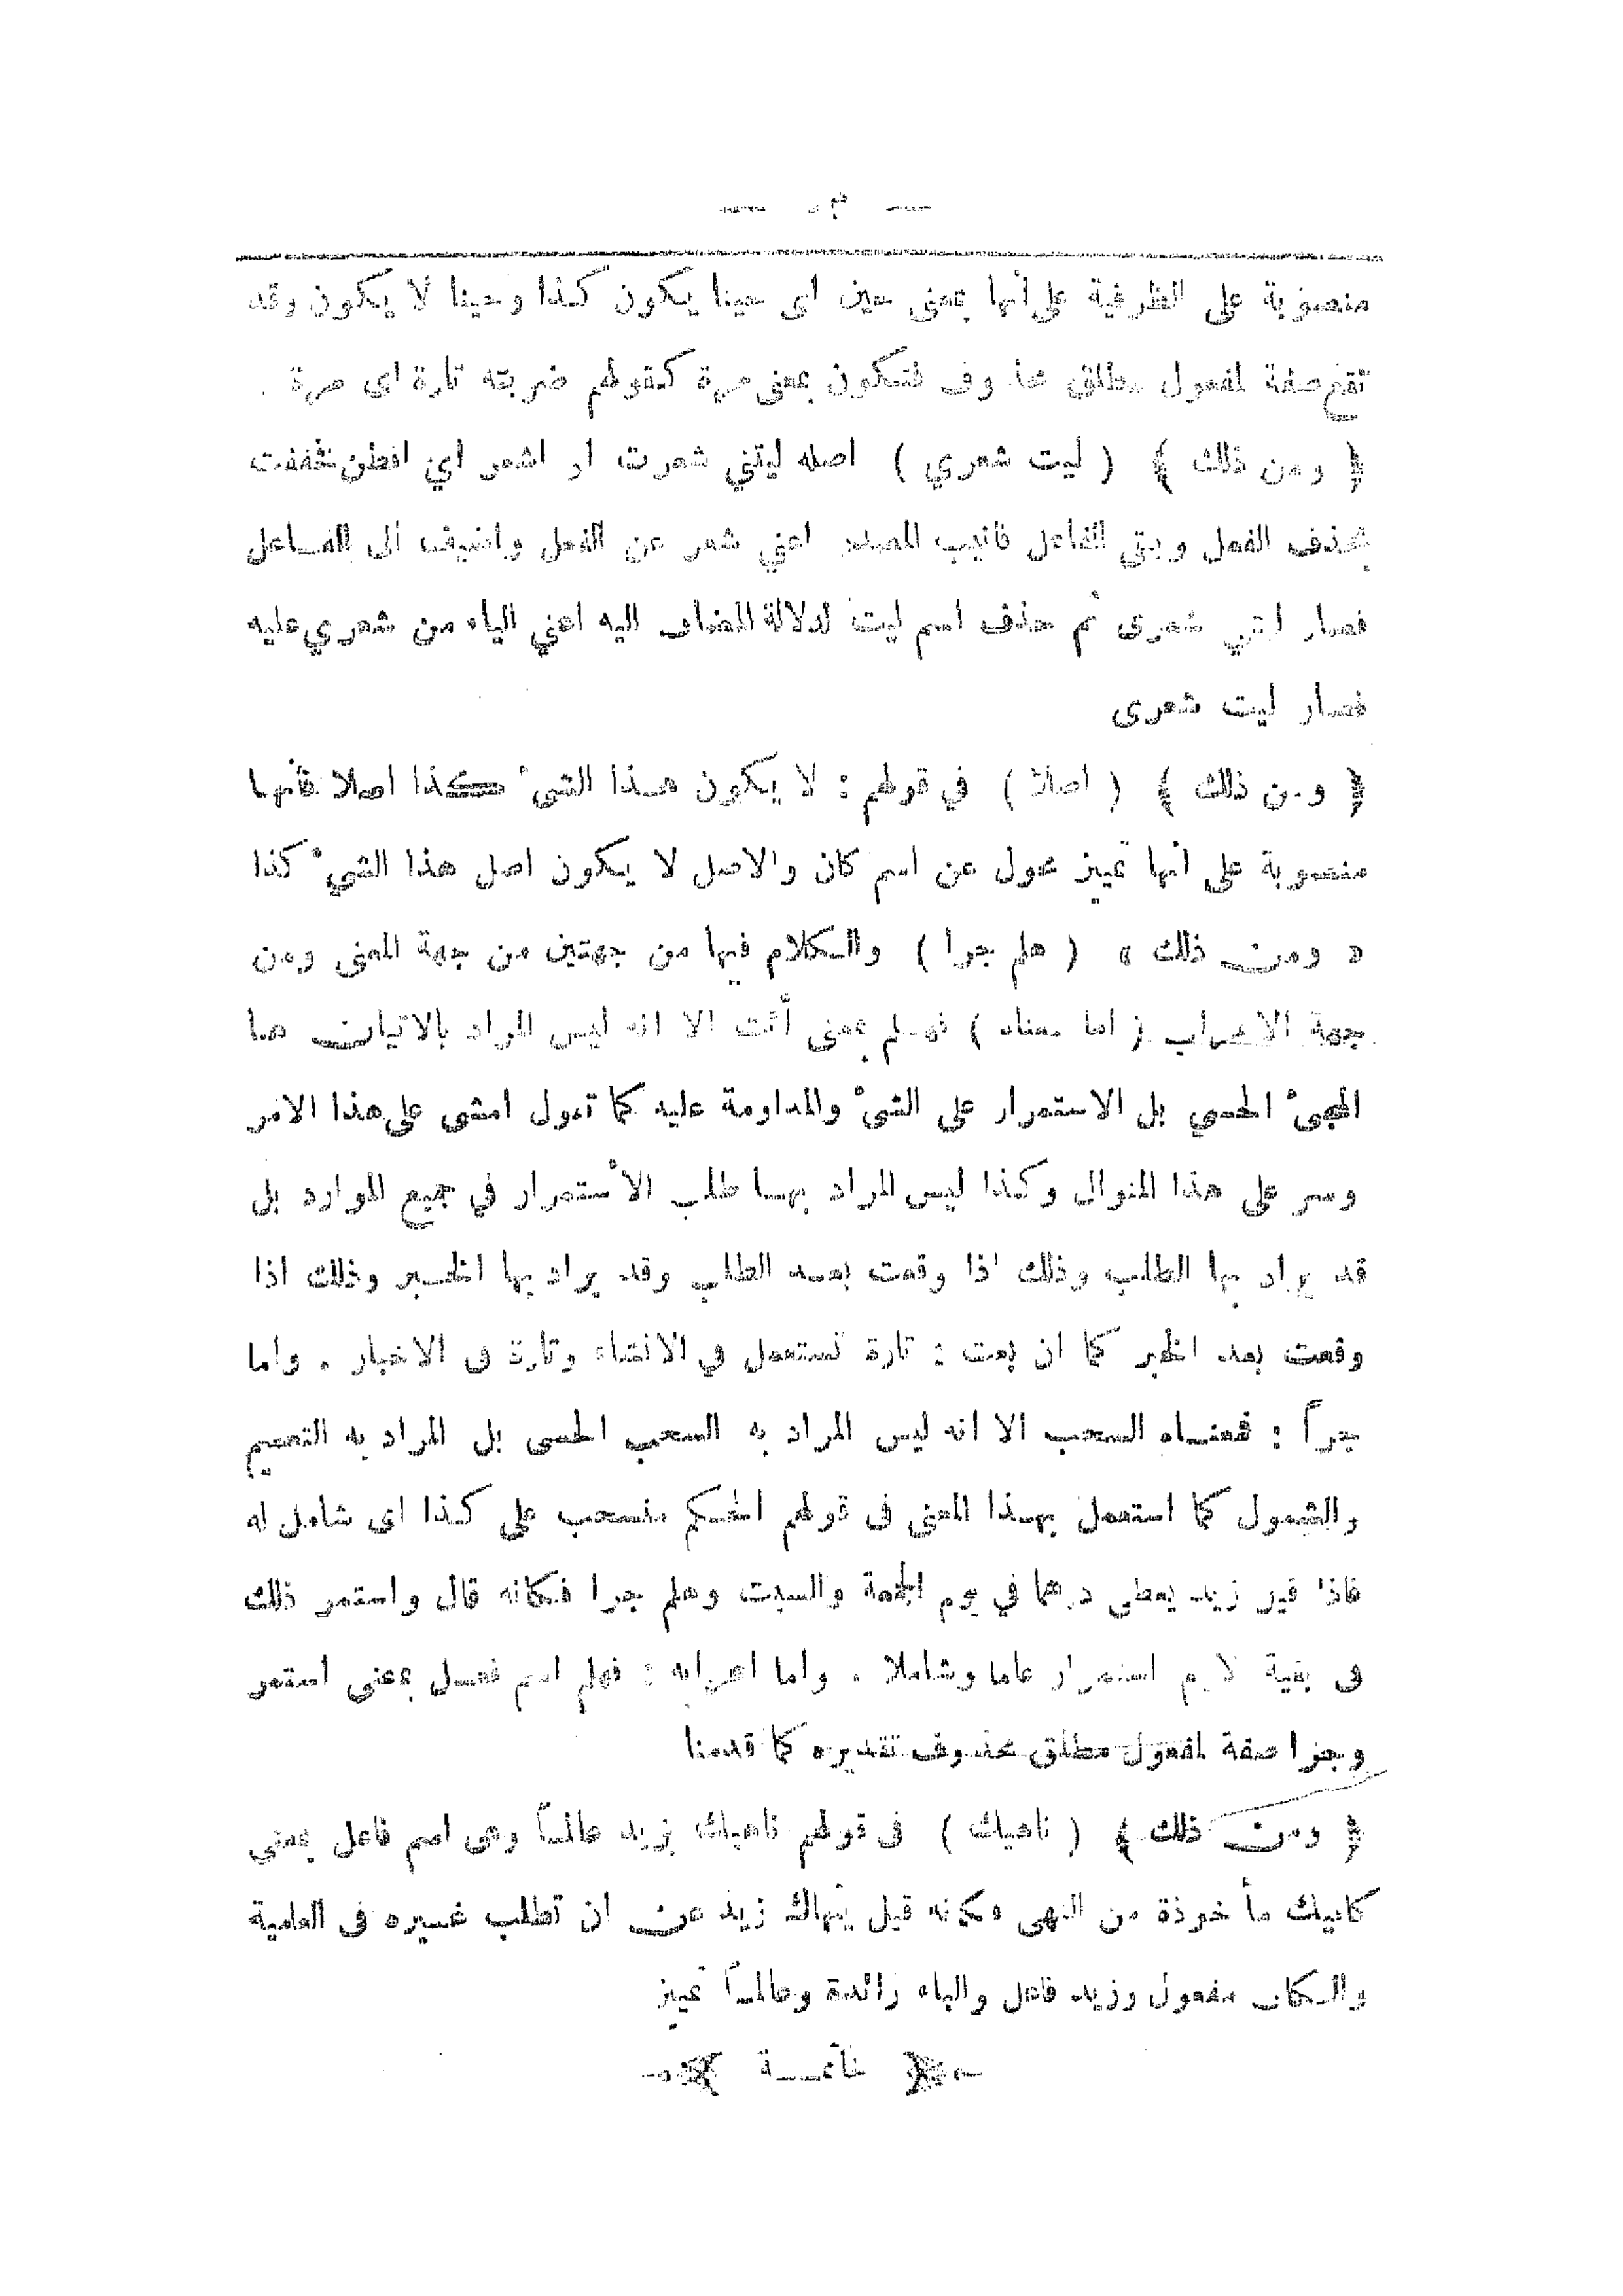 منصوبة على الظرفية على أنها بمعنى حين اى حينا يكون كذا وحينا لا يكون وقد
تقع صفة لمفعول مطلق محذوف فتكون بمعنى مرة كقولهم ضربته تارة اى مرة .
﴿ ومن ذلك ﴾ ( ليت شعري ) اصله ليتني شعرت او اشعر اي افطن فخففت
بحذف الفعل وبقى الفاعل فانيب المصدر اعني شعر عن الفعل واضيف الى الفـاعل
فصار ليتني شعرى ثم حذف اسم ليت لدلالة المضاف اليه اعني الياء من شعري عليه
فصار ليت شعرى
﴿ ومن ذلك ﴾ ( اصلا ) في قولهم : لا يكون هـذا الشئ كذا اصلا فأنهـا
منصوبة على انها تمييز محول عن اسم كان والاصل لا يكون اصل هذا الشيء كذا
« ومن ذلك » ( هلم جرا ) والـكلام فيها من جهتين من جهة المعنى ومن
جهة الاعراب ( اما معناه ) فهـلم بمعنى أئت الا انه ليس المراد بالاتيان هنا
المجئ الحسي بل الاستمرار على الشئ والمداومة عليه كما تقول امشى على هذا الامر
وسر على هذا المنوال وكذا ليس المراد بهـا طلب الأستمرار في جميع الموارد بل
قد يراد بها الطلب وذلك اذا وقعت بعـد الطلب وقد يراد بها الخـبر وذلك اذا
وقعت بعد الخبر كما ان بعت : تارة تستعمل في الانشاء وتارة فى الاخبار . واما
جراً : فمعنـاه السحب الا انه ليس المراد به السحب الحسى بل المراد به التعميم
والشمول كما استعمل بهـذا المعنى فى قولهم الحـكم منسحب على كذا اى شامل له
فاذا قيل زيد يعطي درهما في يوم الجمعة والسبت وهلم جرا فـكانه قال واستمر ذلك
فى بقية الايام استمرار عاما وشاملا . واما اعرابه : فهلم اسم فعـل بمعنى استمر
وجرا صفة لمفعول مطلق محذوف تقديره كما قدمنا
﴿ ومن ذلك ﴾ ( ناهيك ) فى قولهم ناهيك بزيد عالمـاً وهى اسم فاعل بمعنى
كافيك مأخوذة من النهى فكانه قيل ينهاك زيد عن ان تطلب غـيره فى العلمية
والـكاف مفعول وزيد فاعل والباء زائدة وعالمـاً تمييز
خاتمـــة